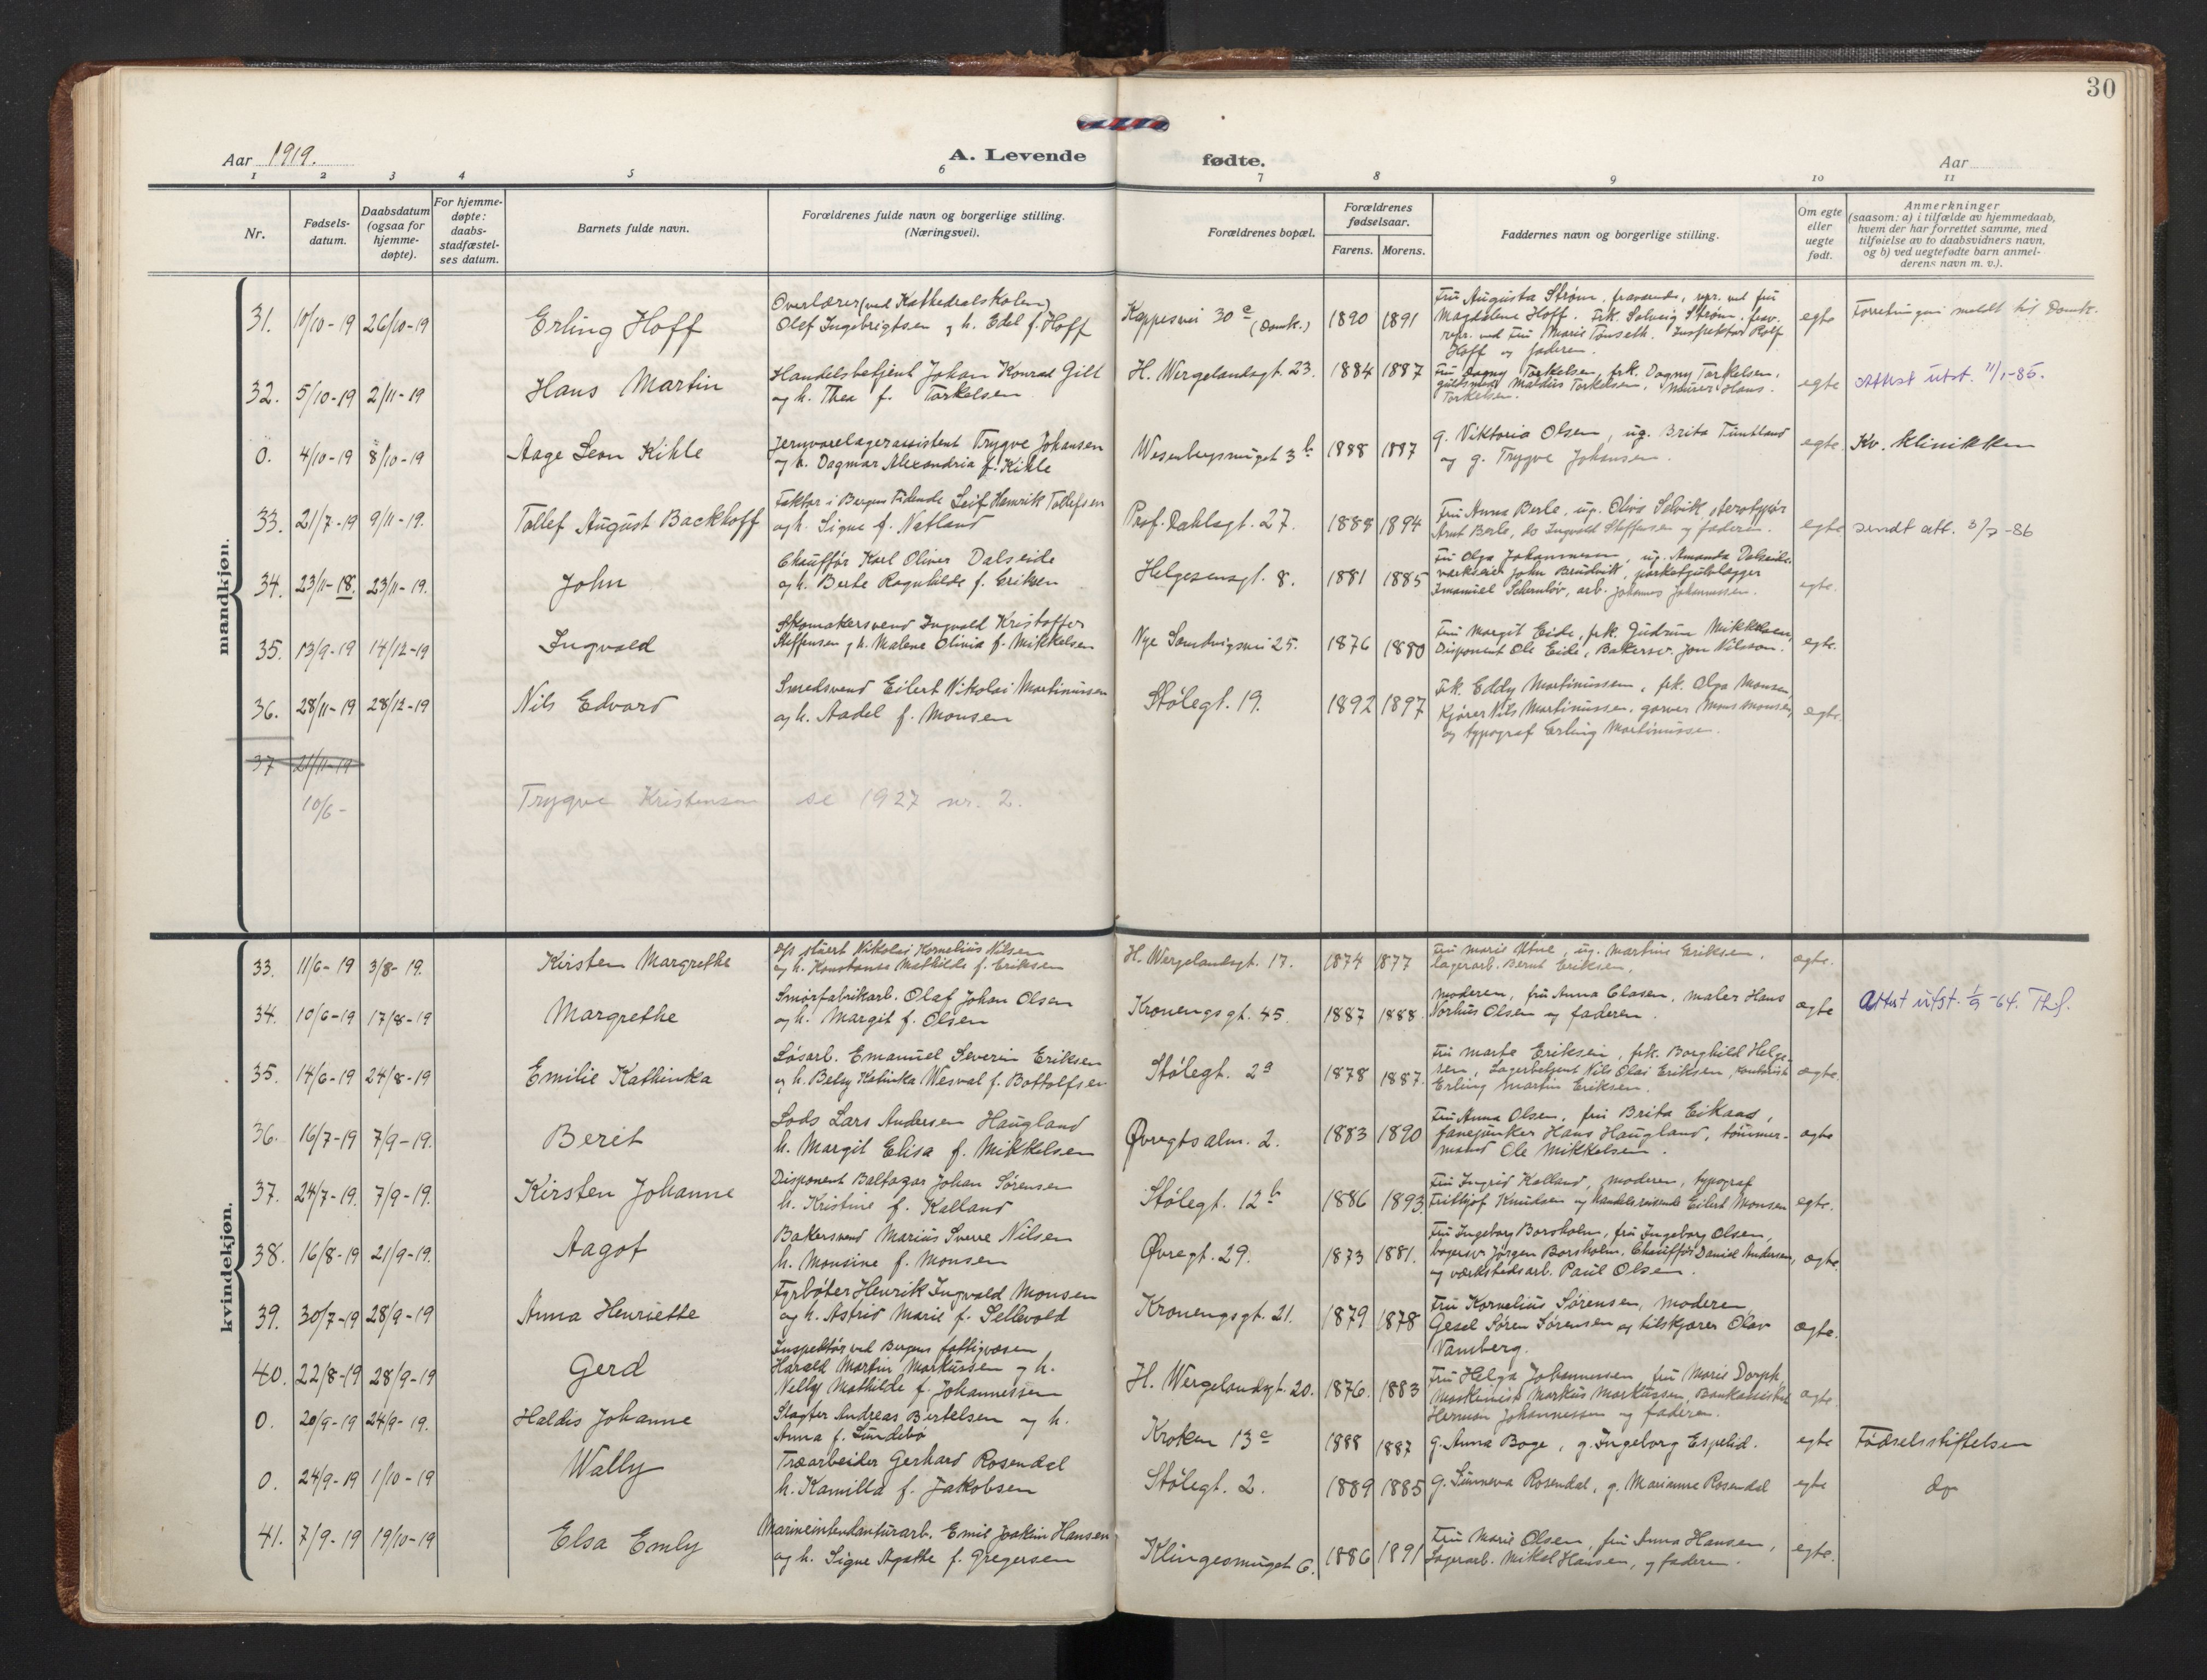 30
Aar 1919.
A. Levende fødte.
Aar
1 2 3 4 5 6 7 8 9 10 11
Nr.
Fødsels-
datum.
Daabsdatum
(ogsaa for
hjemme-
døpte).
For hjemme-
døpte:
daabs-
stadfæstel-
ses datum.
Barnets fulde navn.
Forældrenes fulde navn og borgerlige stilling.
(Næringsvei).
Forældrenes bopæl.
Forældrenes
fødselsaar.
Farens. Morens.
Faddernes navn og borgerlige stilling.
Om egte
eller
uegte
født.
Anmerkninger
(saasom: a) i tilfælde av hjemmedaab,
hvem der har forrettet samme, med
tilføielse av to daabsvidners navn,
og b) ved uegtefødte barn anmel-
derens navn m. v.).
mandkjøn.
31. 10/10-19 26/10-19
Erling Hoff
Overlærer (ved Kathedralskolen)
Olef Ingebrigtsen og h. Edel f. Hoff
(Domk.)
1890 1891
Fru Augusta Strøm, fraværende, repr. ved fru
Magdalene Hoff. Frk. Solveig Strøm, frav.
repr. ved fru Marie Tønseth. Inspektør Rolf
Hoff og faderen.
egte
Forretningen meldt til Domk.
32. 5/10-19 2/11-19
Hans Martin
Handelsbetjent Johan Konrad Gill
og h. Thea f. Torkelsen
H. Wergelandsgt. 23.
1884 1887
Fru Dagny Torkelsen, frk. Dagny Torkelsen,
guldsmed Torkelsen, Murer Hans
Torkelsen.
egte
Attest utst. 11/1-85.
0. 4/10-19 8/10-19
Aage Leon Kihle
Jernvarelagerassistent Trygve Johansen
og h. Dagmar Alexandria f. Kihle
Wesenbergsmuget 3b
1888 1887
g. Viktoria Olsen, ug. Brita Tuntland
og g. Trygve Johansen.
egte.
Kv. klinikken
33. 21/7-19 9/11-19.
Tollef August Backhoff
Faktor i Bergens Tidende Leif Henrik Tollefsen
og h. Signe f. Natland
Prof. Dahlsgt. 27.
1885 1894
Fru Anna Berle, ug. Oliva Selvik, sterotypør
Arnt Berle, do Ingvald Steffensen og faderen.
egte
sendt att. 3/7-86
34. 23/11-18. 23/11-19.
John
Chauffør Karl Oliver Dalseide
og h. Berte Ragnhilde f. Eriksen
Helgesensgt. 8.
1881 1885
Fru Olga Johannesen, ug. Amanda Dalseide,
værkseier John Brudvik, parketgulvlægger
Imanuel arb. Johannes Johannessen.
egte.
35. 13/9-19 14/12-19
Ingvald
Skomakersvend Ingvald Kristoffer
Steffensen og h. Malene Olinia f. Mikkelsen
Nye Sandviksvei 25.
1876 1880
Fru Margit Eide, frk. Gudrun Mikkelsen,
Disponent Ole Eide, Bakersv. Jon Nilsson.
egte.
36. 28/11-19 28/12-19
Nils Edvard
Smedsvend Eilert Nikolai Martinussen
og h. Aadel f. Monsen
Stølegt. 19.
1892 1897
Frk. Eddy Martinussen, frk. Olga Monsen,
Kjører Nils Martinussen, garver Mons Monsen,
og typograf Erling Martinussen.
egte.
37 21/11-19
10/6-
Trygve Kristensen se 1927 nr. 2.
kvindekjøn.
33. 11/6-19 3/8-19.
Kirsten Margrethe
D/s stuert Nikolai Kornelius Nilsen
og h. Konstanse Mathilde f. Eriksen
H. Wergelandsgt. 17.
1874 1877
Fru Marie Utne, ug. Martine Eriksen,
lagerarb. Bernt Eriksen.
ægte.
34. 10/6-19 17/8-19
Margrethe
Smørfabrikarb. Olaf Johan Olsen
og h. Margit f. Olsen
Kronengsgt. 45.
1887 1888.
Moderen, fru Anna Clasen, maler Hans
Norhus Olsen og faderen.
ægte
Attest utst. 1/9-64. Th.f.
35. 14/6-19 24/8-19
Emilie Kathinka
Løsarb. Emanuel Severin Eriksen
og h. Betsy Katinka Wesval f. Bottolfsen
Stølegt. 2a
1878 1887.
Fru Marte Eriksen, frk. Borghild Helge-
sen, Lagerbetjent Nils Olai Eriksen, kontorist
Erling Martin Eriksen.
ægte.
36. 16/7-19 7/9-19.
Berit
Lods Lars Andersen Haugland
h. Margit Elisa f. Mikkelsen
Øvregtsalm. 2.
1883 1890
Fru Anna Olsen, fru Brita Eikaas,
fanejunker Hans Haugland, tømmer-
mand Ole Mikkelsen.
ægte
37. 24/7-19. 7/9-19.
Kirsten Johanne
Disponent Baltazar Johan Sørensen
h. Kristine f. Kalland
Stølegt. 12b
1886 1893.
Fru Ingrid Kalland, moderen, typograf
Fritthjof Knudsen og handelsreisende Eilert Monsen
egte.
38. 16/8-19 21/9-19.
Aagot
Bakersvend Marius Sverre Nilsen
h. Monsine f. Monsen
Øvregt. 29.
1873 1881.
Fru Ingeborg Borsholm, fru Ingeborg Olsen,
bagersv. Jørgen Borsholm, Chauffør Daniel Andersen,
og værkstedsarb. Paul Olsen.
ægte.
39. 30/7-19 28/9-19
Anna Henriette
Fyrbøter Henrik Ingvald Monsen
og h. Astrid Marie f. Sellevold
Kronengsgt. 21.
1879 1878
Fru Kornelius Sørensen, moderen,
Gesel Søren Sørensen og tilskjærer Olav
Vamberg.
ægte.
40. 22/8-19 28/9-19
Gerd
Inspektør ved Bergens fattigvæsen
Harald Martin Markussen og h.
Nelly Mathilde f. Johannessen
H. Wergelandsgt. 20.
1876. 1883
Fru Helga Johannessen, fru Marie Dorph,
Maskinist Markus Markussen, Bankassistent
Herman Johannessen og faderen.
ægte.
0. 20/9-19 24/9-19.
Haldis Johanne
Slagter Andreas Bertelsen og h.
Anna f. Lundebø
Kroken 13c
1888 1887
g. Anna Boge, g. Ingeborg Espelid.
egte
Fødselsstiftelsen
0. 24/9-19 1/10-19
Wally
Træarbeider Gerhard Rosendal
h. Kamilla f. Jakobsen
Stølegt. 2.
1889 1885
g. Sunneva Rosendal, g. Marianne Rosendal
egte
do
41. 7/9-19 19/10-19
Elsa Emly
Marineintendanturarb. Emil Joakim Hansen
og h. Signe Agathe f. Gregersen
Klingesmuget 6.
1886 1891
Fru Marie Olsen, fru Anna Hansen,
Lagerarb. Mikal Hansen, og faderen.
egte.